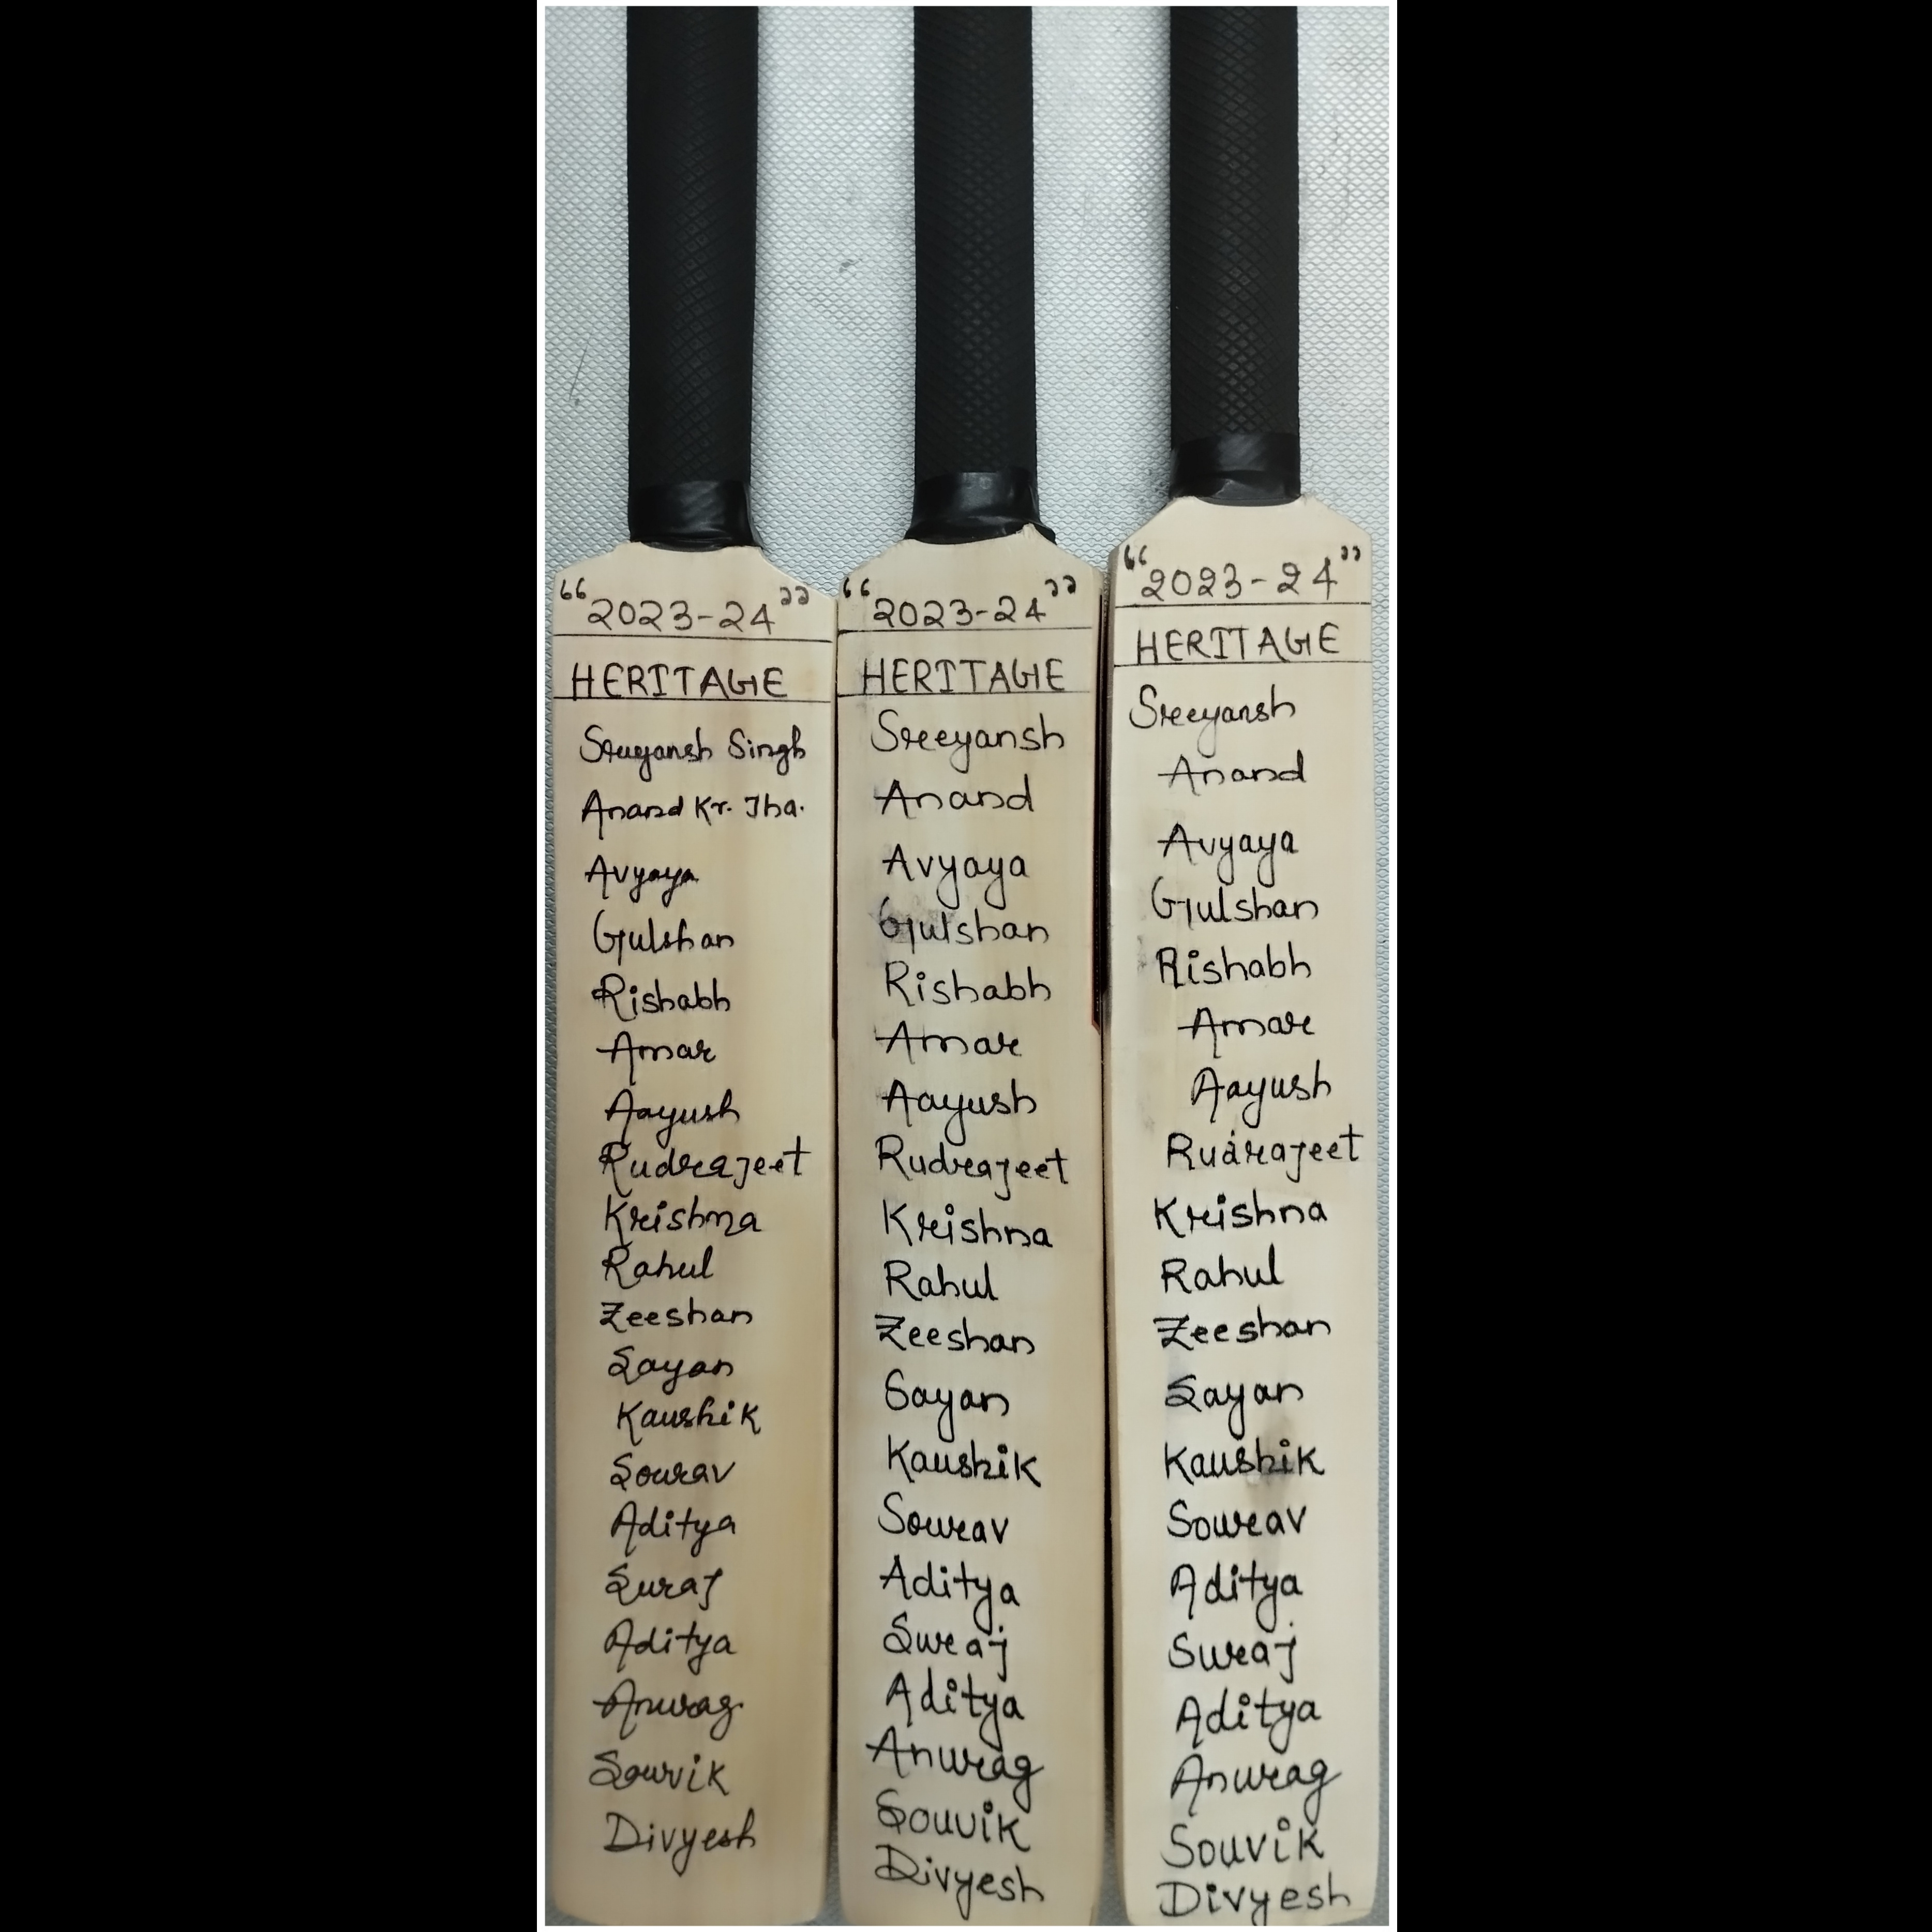 “2023-24”
HERITAGE
Sreeyansh Singh
Anand Kr. Jha.
Avyaya
Gulshan
Rishabh
Amar
Aayush
Rudrajeet
Krishna
Rahul
Zeeshan
Sayan
Kaushik
Sourav
Aditya
Suraj
Aditya
Anurag
Souvik
Divyesh
“2023-24”
HERITAGE
Sreeyansh
Anand
Avyaya
Gulshan
Rishabh
Amar
Aayush
Rudrajeet
Krishna
Rahul
Zeeshan
Sayan
Kaushik
Sourav
Aditya
Suraj
Aditya
Anurag
Souvik
Divyesh
“2023-24”
HERITAGE
Sreeyansh
Anand
Avyaya
Gulshan
Rishabh
Amar
Aayush
Rudrajeet
Krishna
Rahul
Zeeshan
Sayan
Kaushik
Sourav
Aditya
Suraj
Aditya
Anurag
Souvik
Divyesh